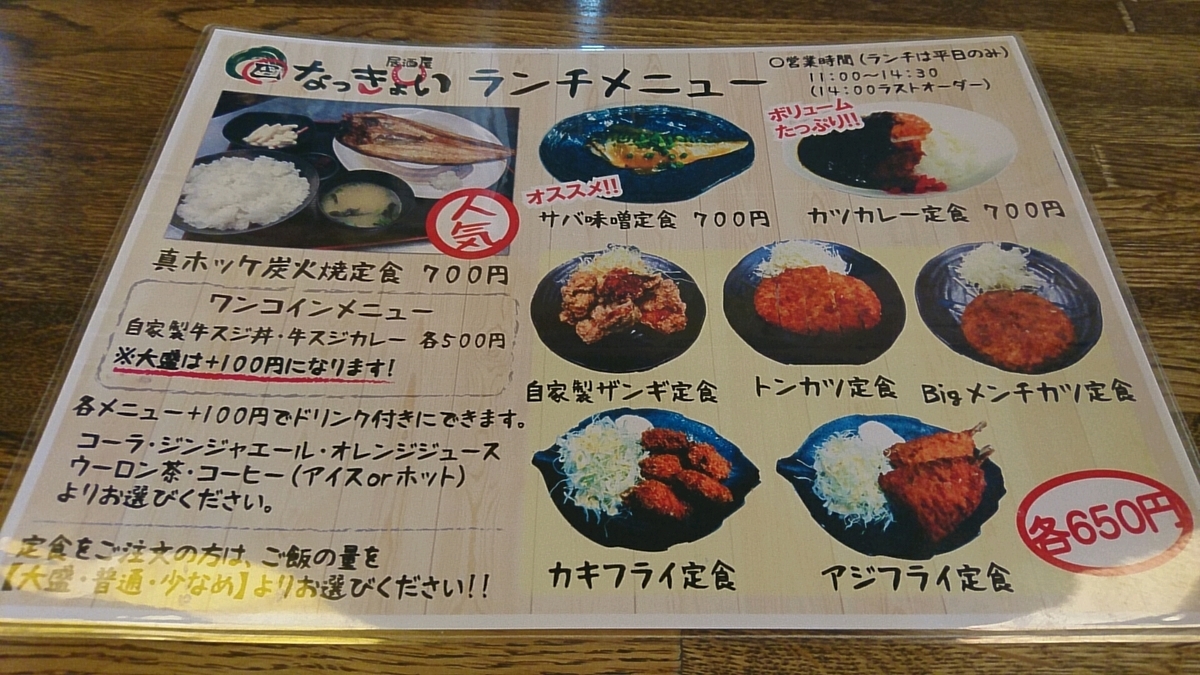 居酒屋
なっきょい ランチメニュー
〇営業時間(ランチは平日のみ)
11:00〜14:30
(14:00ラストオーダー)
人気
真ホッケ炭火焼定食 700円
オススメ!!
サバ味噌定食 700円
ボリューム
たっぷり!!
カツカレー定食 700円
ワンコインメニュー
自家製牛スジ丼・牛スジカレー 各500円
※大盛は+100円になります!
各メニュー+100円でドリンク付きにできます。
コーラ・ジンジャエール・オレンジジュース
ウーロン茶・コーヒー(アイスorホット)
よりお選びください。
定食をご注文の方は、ご飯の量を
【大盛・普通・少なめ】よりお選びください!!
自家製ザンギ定食
トンカツ定食
Bigメンチカツ定食
カキフライ定食
アジフライ定食
各650円